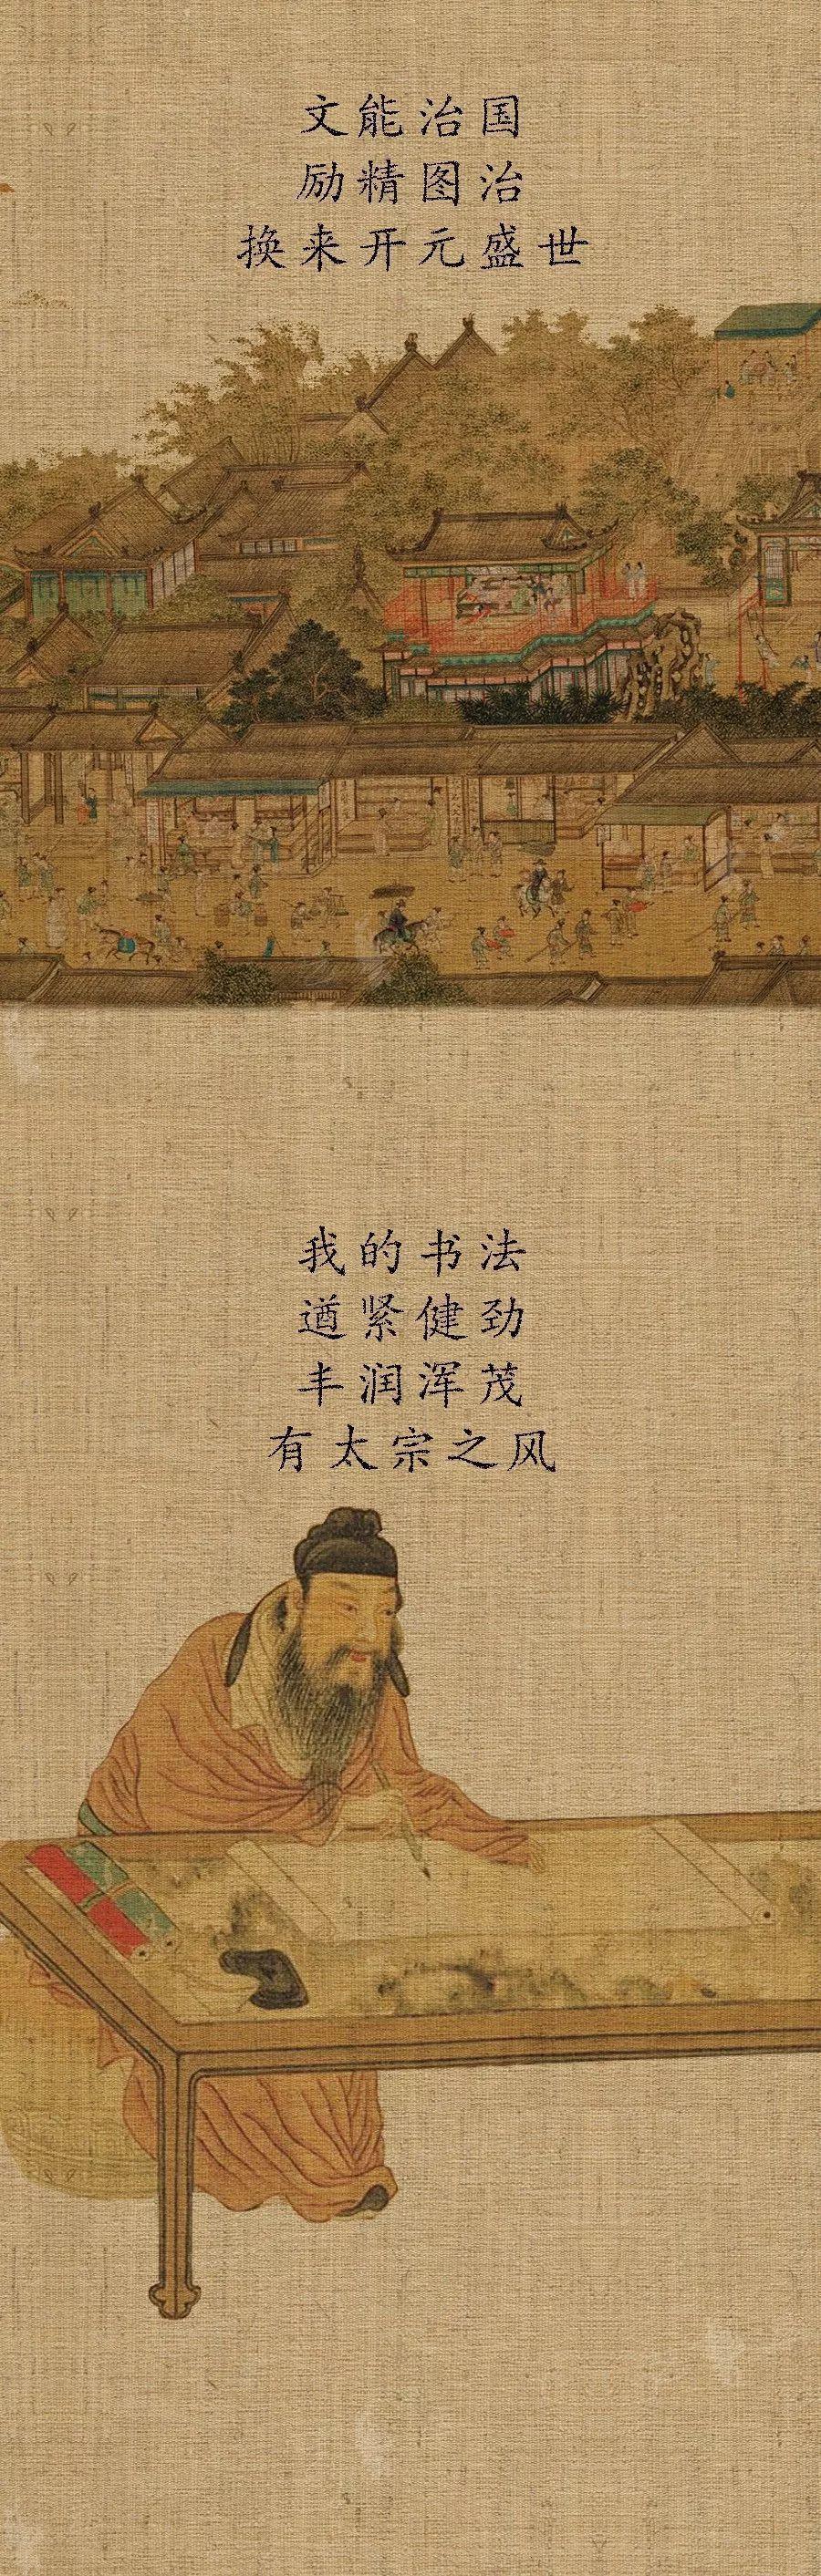 文能治国
励精图治
换来开元盛世
我的书法
遒紧健劲
丰润浑茂
有太宗之风